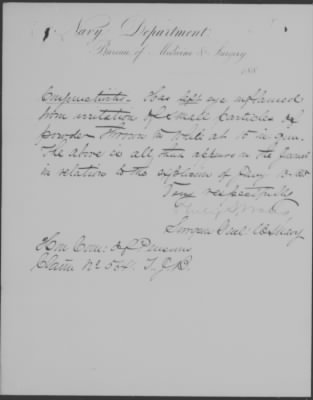 Navy Department
Bureau of Medicine & Surgery
188
Conjunctivitis. Has left eye inflamed
from irritation of small particles of
powder thrown in while at 10 in gun.
The above is all that appears in the
in relation to the
Very respectfully
Surgeon Genl. U.S. Navy
Hon Com: of Pensions
Claim No 564. T.J.B.